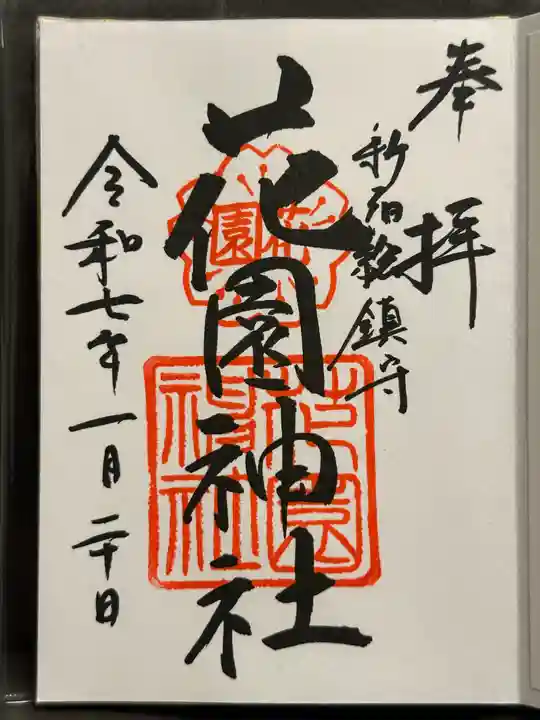 奉拝
新宿総鎮守
花園神社
令和七年一月二十日
花園
花園神社